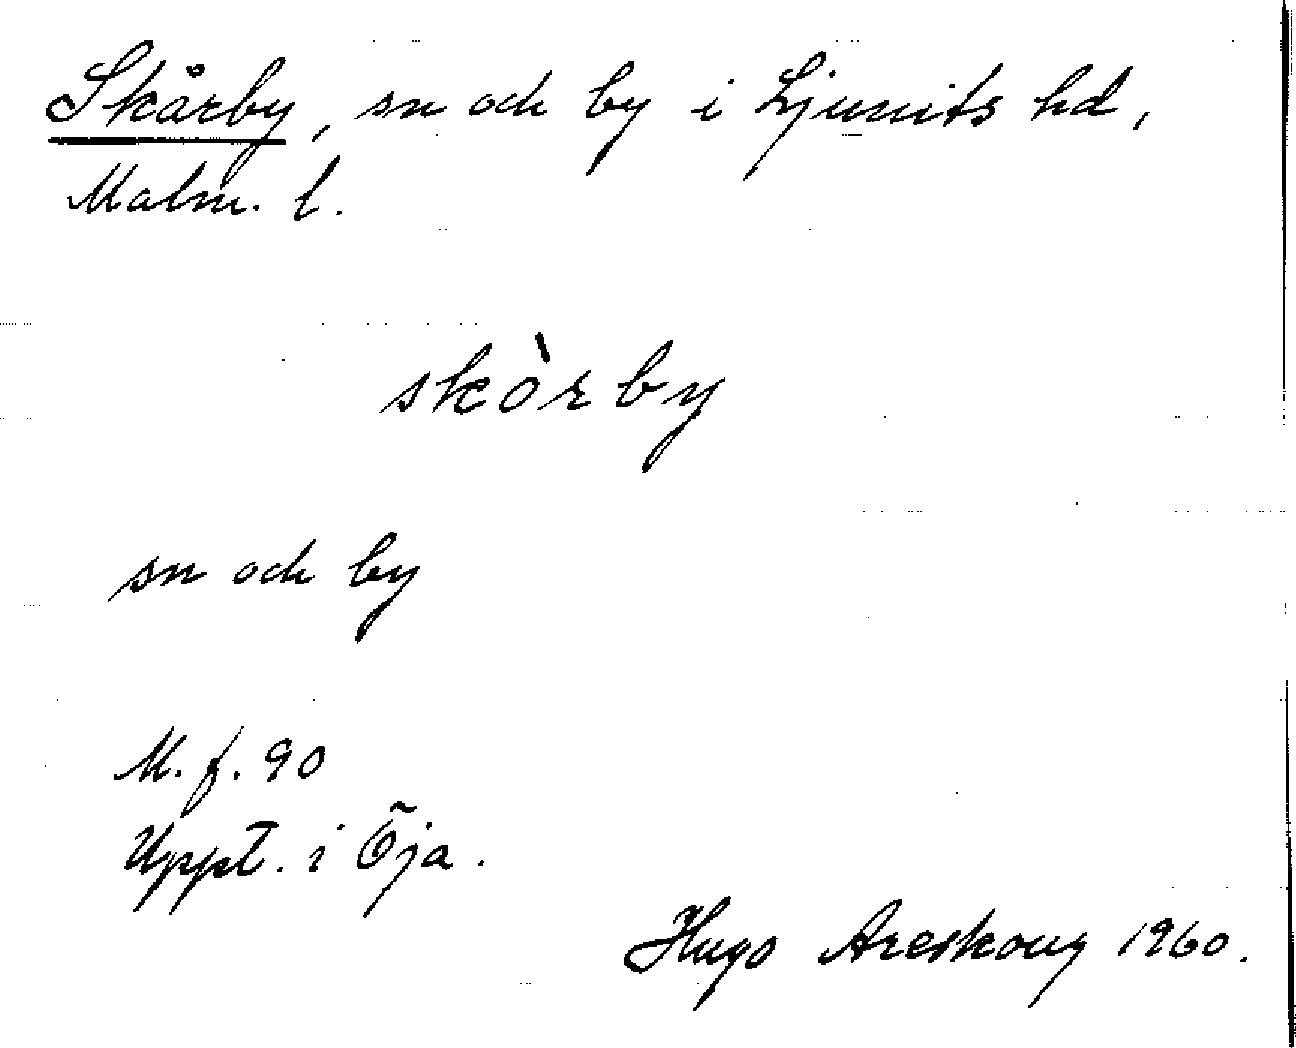 Skårby, sn och by i Ljunits hd,
Malm. l.
skòrby
sn och by
M. f. 90
Uppt. i Öja.
Hugo Areskoug 1960.